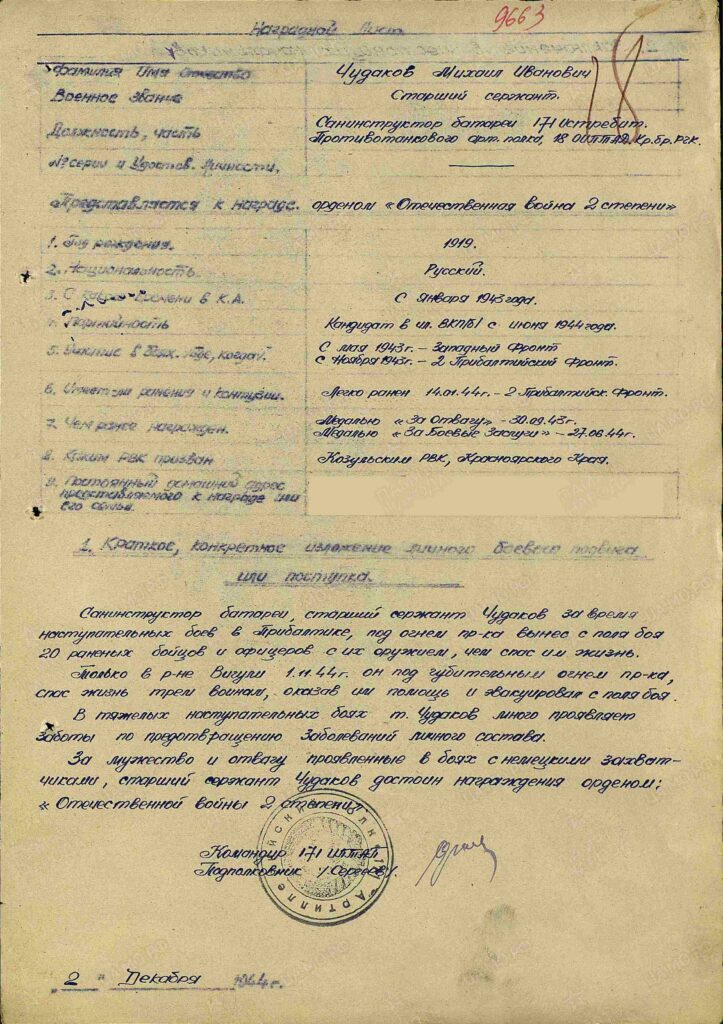 9663
Наградной Лист
18
Фамилия Имя Отчество Чудаков Михаил Иванович
Военное Звание Старший сержант.
Должность, часть Санинструктор батареи 171 Истребит.
Противотанкового арт. полка, 18 ОИПТАБр. Кр. бр. РГК.
№ серии и Удостов. личности.
Представляется к награде. орденом «Отечественная война 2 степени»
1. Год рождения. 1919.
2. Национальность. Русский.
3. С какого времени в К.А. С Января 1943 года.
4. Партийность Кандидат в чл. ВКП/б/ с июня 1944 года.
5. Участие в гр. где, когда. С мая 1943г. – Западный Фронт
С Ноября 1943г. – 2 Прибалтийский Фронт.
6. Имеет ли ранения и контузии. Легко ранен 14.01.44г. – 2 Прибалтийск. Фронт.
7. Чем ранее награжден. Медалью «За Отвагу» - 30.09.43г.
Медалью «За Боевые Заслуги» – 27.06.44г.
8. Каким РВК призван Козульским РВК, Красноярского Края.
9. Постоянный домашний адрес
представляемого к награде или
его семьи.
1. Краткое, конкретное изложение личного боевого подвига
или поступка.
Санинструктор батареи, старший сержант Чудаков за время
наступательных боев в Прибалтике, под огнем пр-ка вынес с поля боя
20 раненых бойцов и офицеров с их оружием, чем спас им жизнь.
Только в р-не Вигули 1.11.44г. он под губительным огнем пр-ка,
спас жизнь трем воинам, оказав им помощь и эвакуировал с поля боя.
В тяжелых наступательных боях т. Чудаков много проявляет
заботы по предотвращению заболеваний личного состава.
За мужество и отвагу проявленные в боях с немецкими захват-
чиками, старший сержант Чудаков достоин награждения орденом:
«Отечественной войны 2 степени»
Командир 171 ИПТАП
Подполковник /Сергеев/.
"2" Декабря 1944 г.